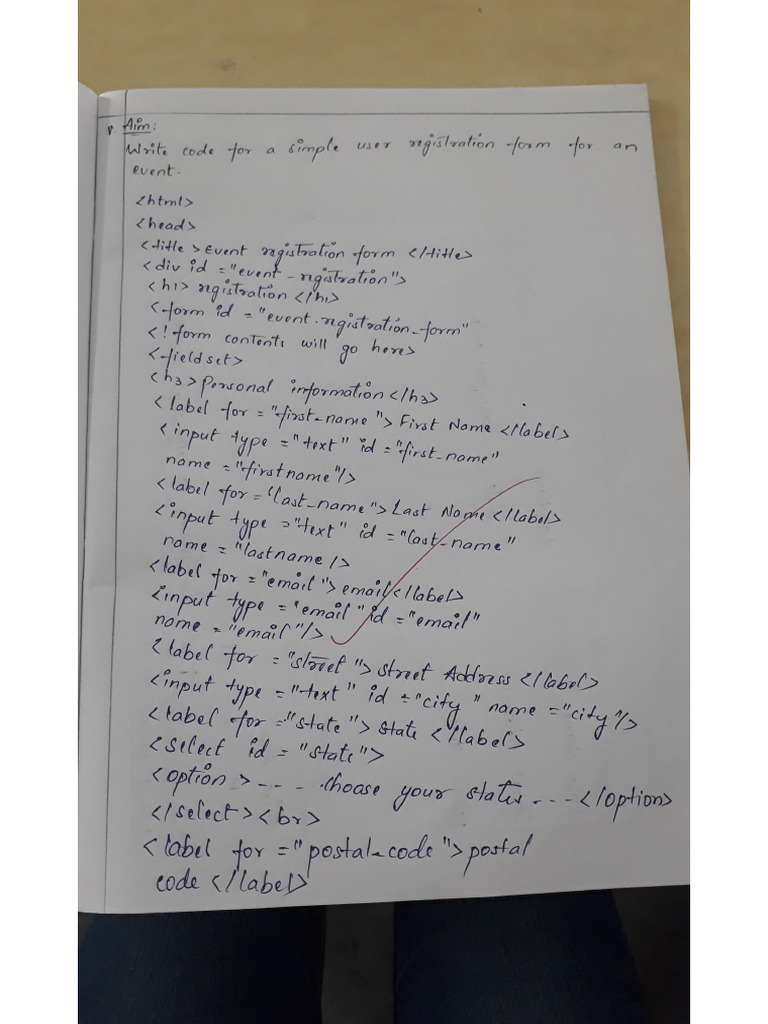 8. Aim:
Write code for a simple user registration form for an
event.
<html>
<head>
<title>Event registration form </title>
<div id="event-registration">
<h1> registration </h1>
<form id = "event.registration-form"
<! form contents will go here>
<fieldset>
<h3>Personal information</h3>
<label for = "first_name "> First Name </label>
<input type = "text" id = "first_name"
name = "firstname"/>
<label for= "last_name"> Last Name </label>
<input type ="text" id = "last_name"
name = "lastname />
<label for = "email "> email </label>
<input type = "email" id = "email"
name = "email "/>
<label for = "street "> street Address </label>
<input type = "text" id = "city " name = "city"/>
<label for ="state "> state </label>
<select id = "state">
<option > --- choose your state --- </option>
</select><br>
<label for = "postal-code "> postal
code </label>